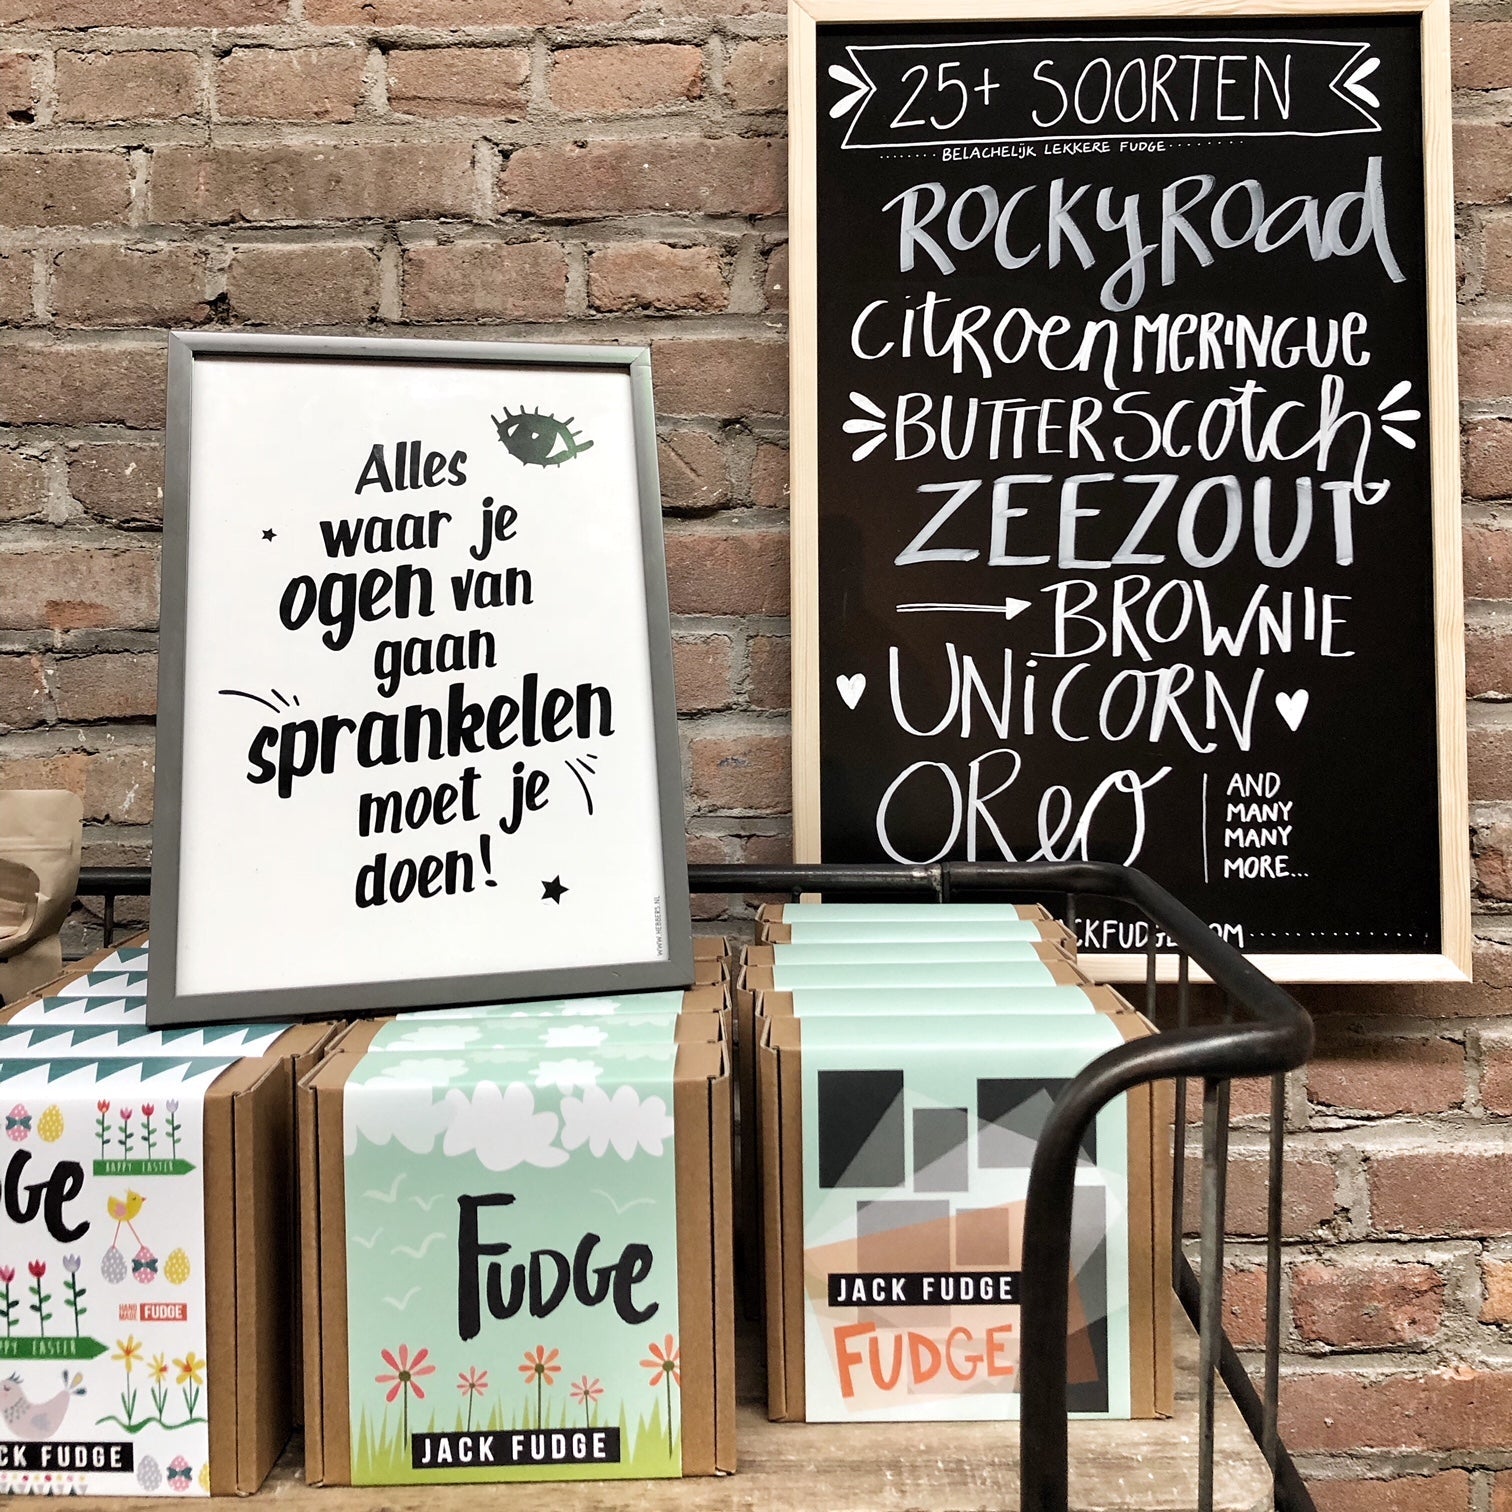 25+ SOORTEN
BELACHELIJK LEKKERE FUDGE
ROCKY ROAD
CITROEN MERINGUE
BUTTERSCOTCH
ZEEZOUT
BROWNIE
UNICORN
OREO
AND
MANY
MANY
MORE...
Alles
waar je
ogen van
gaan
sprankelen
moet je
doen!
WWW.HEBBERS.NL
HAPPY EASTER
HAND MADE FUDGE
EASTER
FUDGE
FUDGE
JACK FUDGE
JACK FUDGE
FUDGE